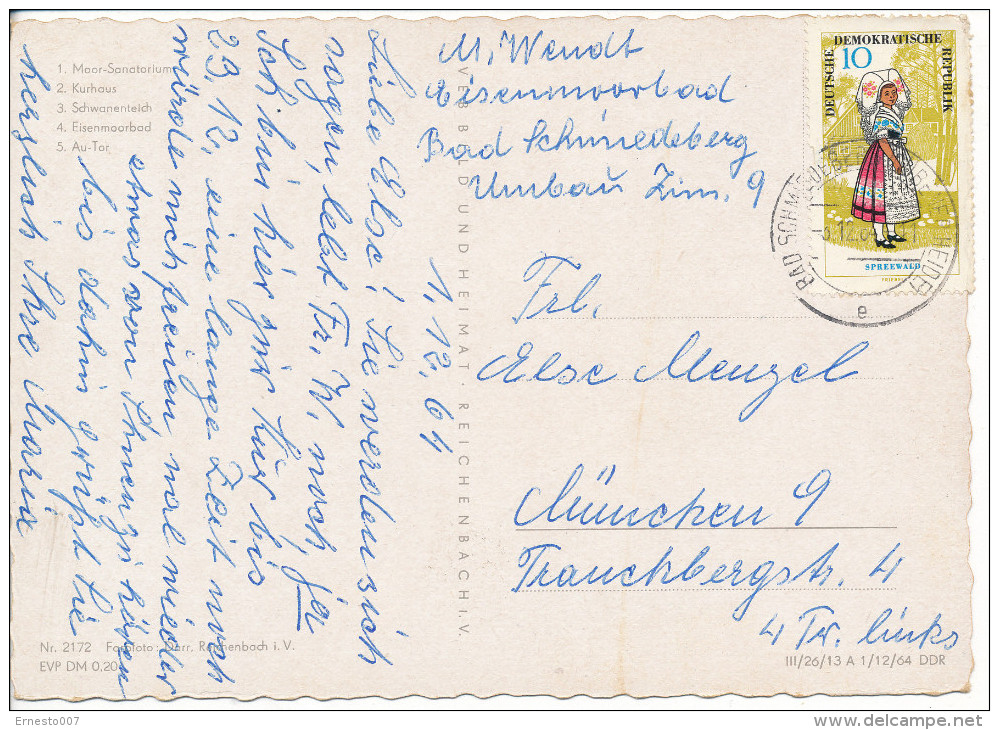 1. Moor-Sanatorium
2. Kurhaus
3. Schwanenteich
4. Eisenmoorbad
5. Au-Tor
M. Wendt
Eisenmoorbad
Bad Schmiedeberg
Umbau Zim. 9
DEUTSCHE DEMOKRATISCHE REPUBLIK
10
SPREEWALD
BAD SCHMIEDEBERG HEIDE
12.64
e
1.12.64
Liebe Else! Sie werden sich
sagen, lebt Fr. W. noch, ja
Ich bin hier zur Kur bis
29.12. eine lange Zeit noch
würde mich freuen mal wieder
etwas von Ihnen zu hören
bis dahin grüßt Sie
herzlich Ihre Maria
Frl.
Else Menzel
München 9
Trauchbergstr. 4
4 Tr. links
VERLAG BILD UND HEIMAT · REICHENBACH I. V.
Nr. 2172 Farbfoto: Darr, Reichenbach i. V.
EVP DM 0,20
III/26/13 A 1/12/64 DDR
Ernesto007
delcampe.net